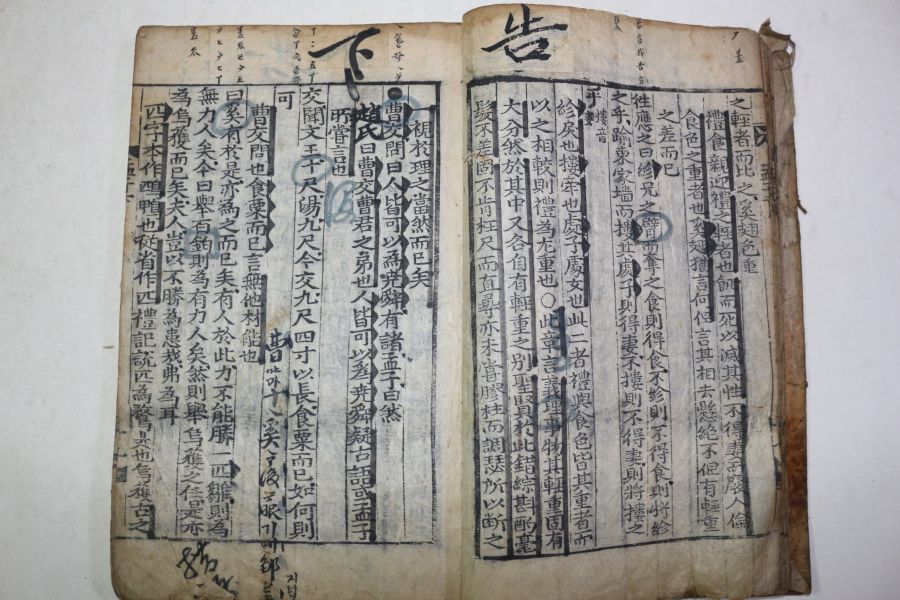 告
之輕者而比之奚翅色重
禮食親迎禮之輕者也飢而死以滅其性不得妻而廢人倫
食色之重者也奚翅猶言何但言其相去懸絶不但有輕重
之差而已
往應之曰紾兄之臂而奪之食則得食不紾則不得食則將紾
之乎踰東家墻而摟其處子則得妻不摟則不得妻則將摟之
乎 摟音
紾戾也摟牽也處子處女也此二者禮與食色皆其重者而
以之相較則禮為尤重也○此章言義理事物其輕重固有
大分然於其中又各自有輕重之別聖賢於此錯綜斟酌毫
髮不差固不肯枉尺而直尋亦未嘗膠柱而調瑟所以斷之
下
視於理之當然而已矣
曹交問曰人皆可以為堯舜有諸孟子曰然
趙氏曰曹交曹君之弟也人皆可以為堯舜疑古語或孟子
所嘗言也
交聞文王十尺湯九尺今交九尺四寸以長食粟而已如何則
可
曹交問也食粟而已言無他材能也
曰奚有於是亦為之而已矣有人於此力不能勝一匹雛則為
無力人矣今曰舉百鈞則為有力人矣然則舉烏獲之任是亦
為烏獲而已矣夫人豈以不勝為患哉弗為耳
匹字本作鴄鴨也從省作匹禮記說匹為鶩是也烏獲古之